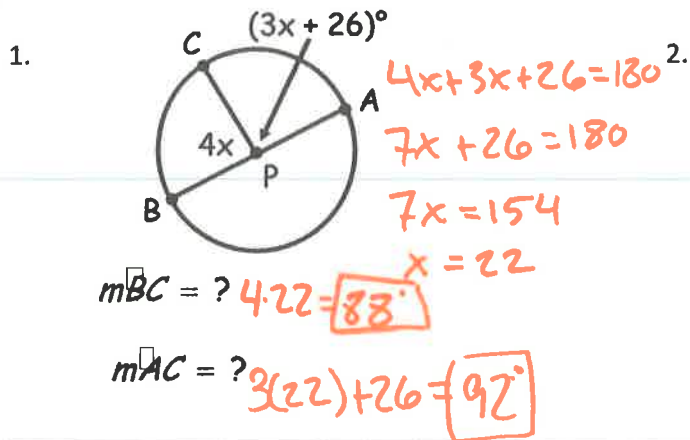 1.
(3x + 26)°
2.
C
A
4x
P
B
4x+3x+26=180
7x+26=180
7x=154
x=22
m▯BC = ? 4·22=88°
m▯AC = ? 3(22)+26=92°